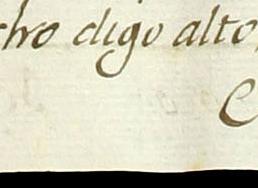 cho digo alto,
C